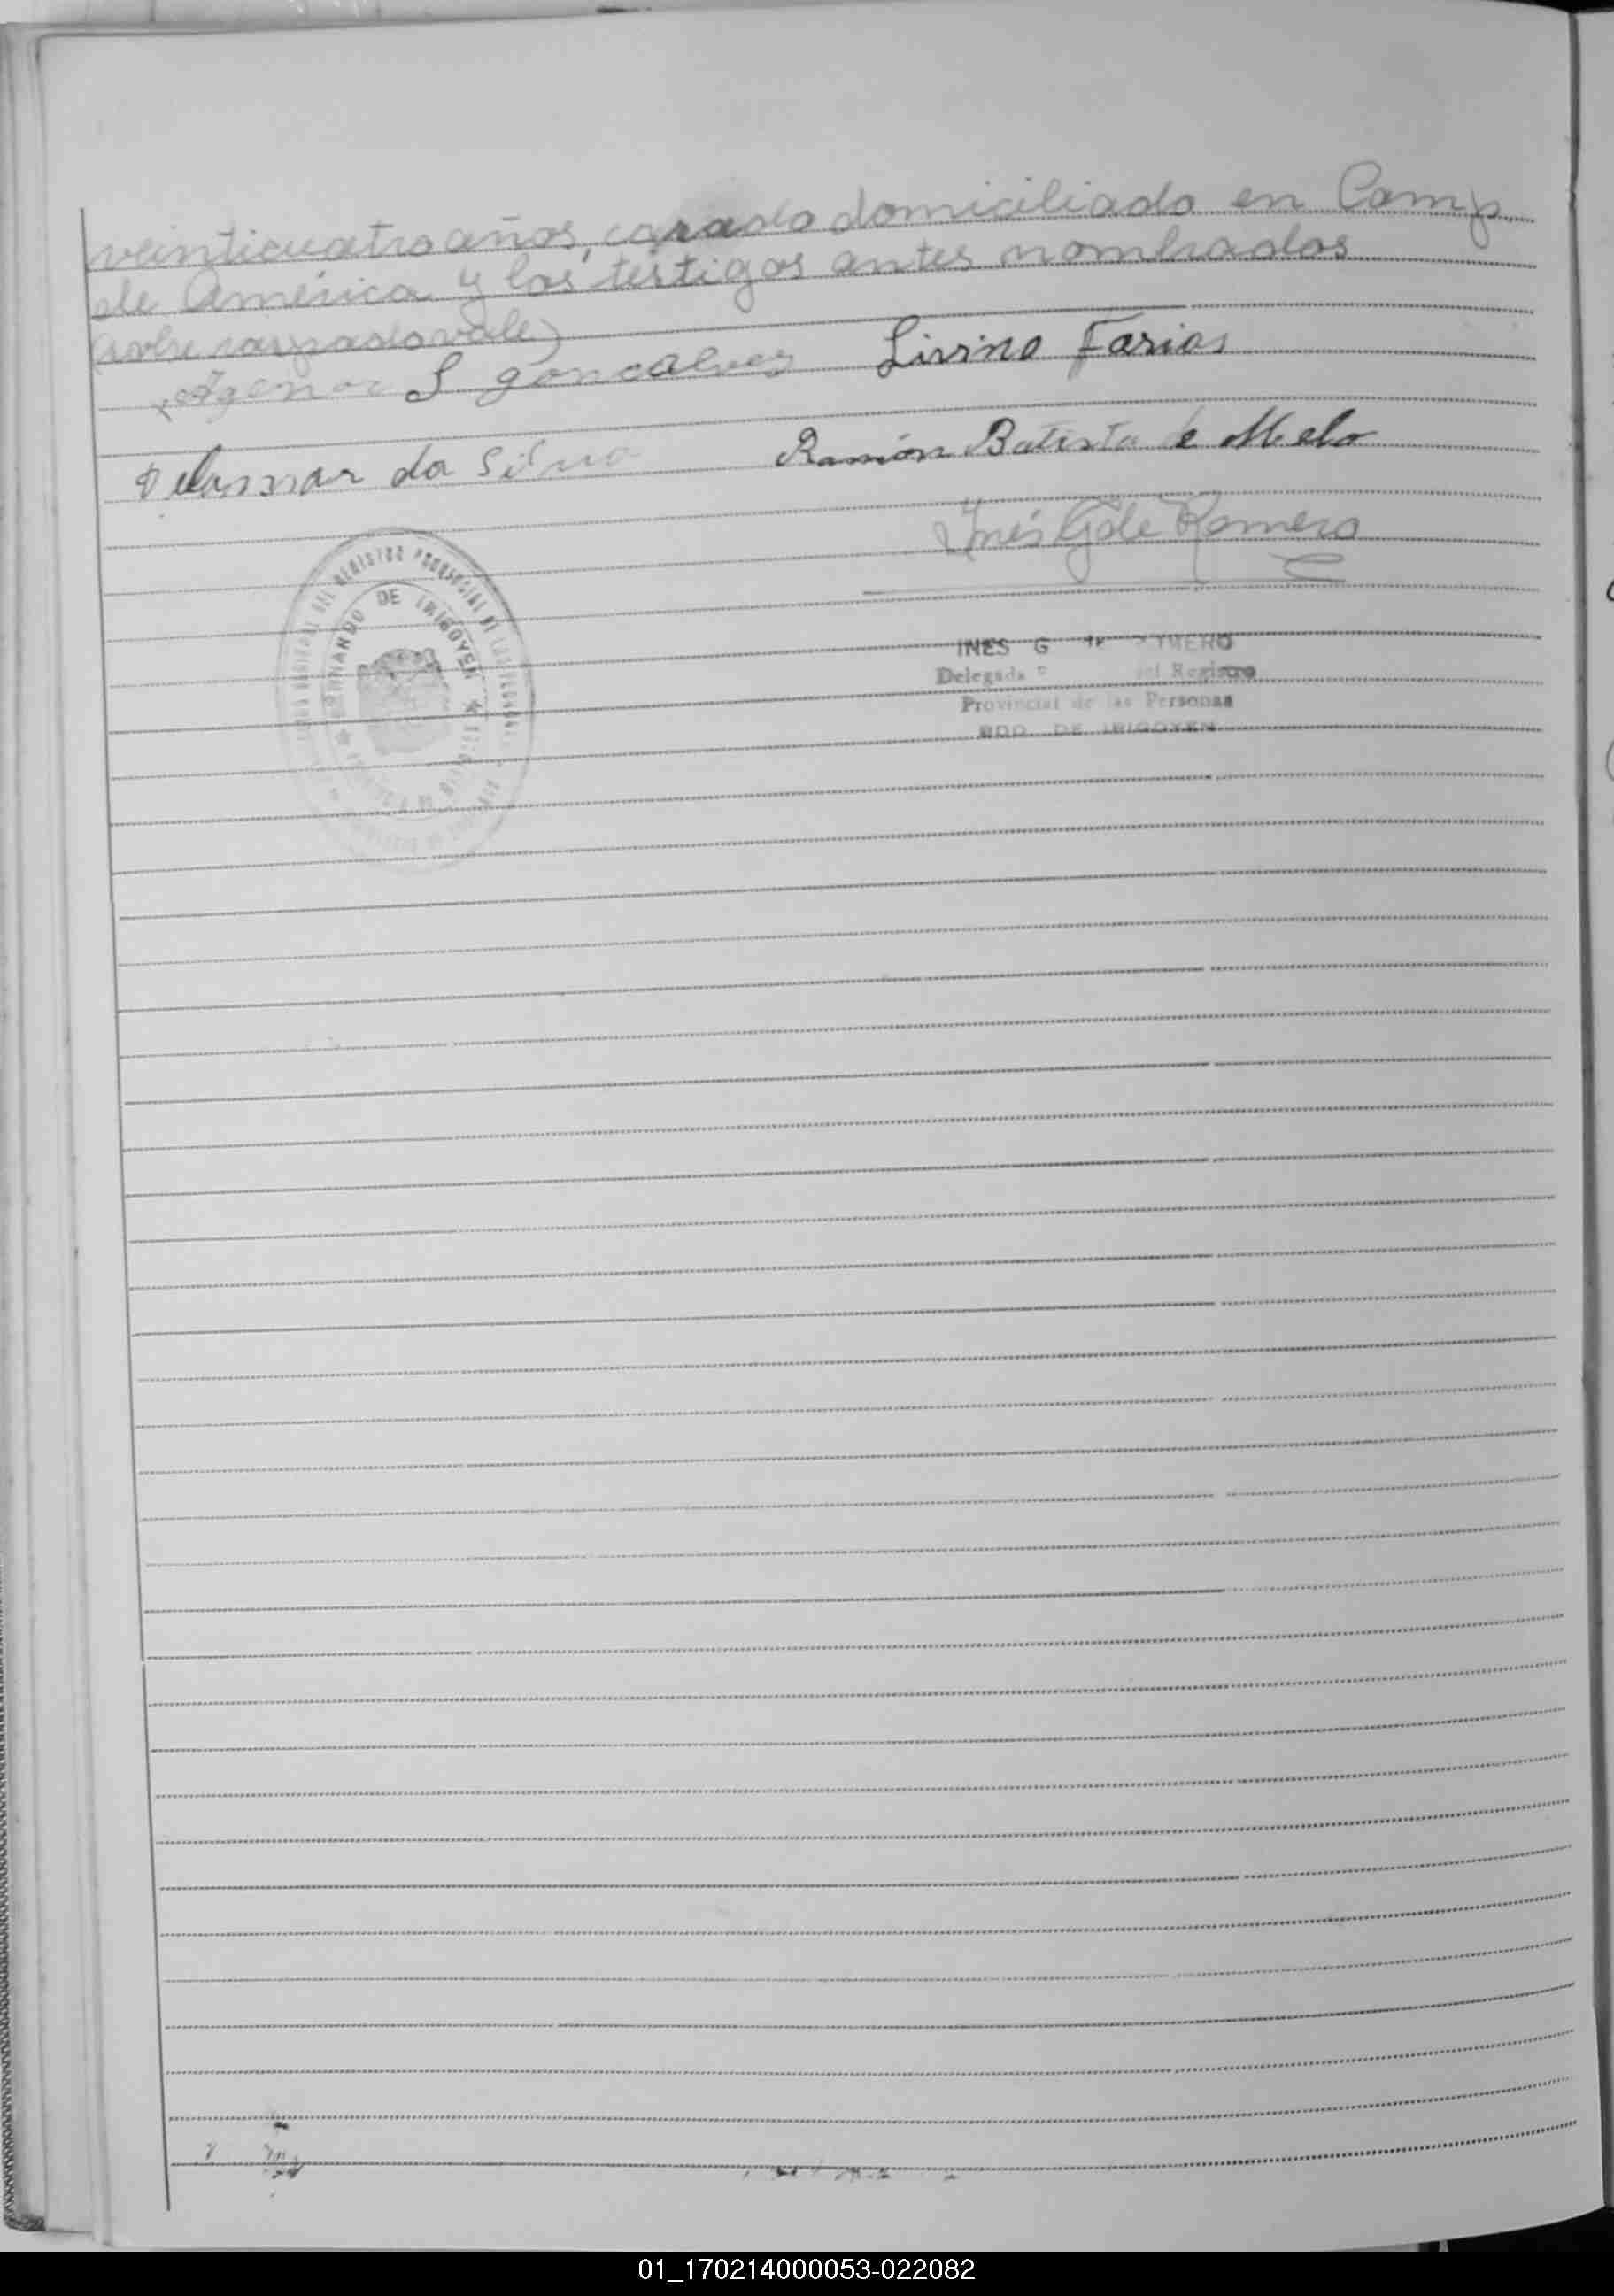 veinticuatro años, casado domiciliado en Camp.
de América y los testigos antes nombrados
(sobre raspado vale)
Agenor S goncalves Livino Farias
da Silva Ramón Batista de Melo
Inés G de Romero
DEL REGISTRO PROVINCIAL DE LAS PERSONAS
BERNARDO DE IRIGOYEN
INES G de ROMERO
Delegada del Registro
Provincial de las Personas
BDO. DE IRIGOYEN
01_170214000053-022082